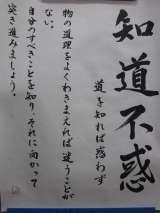 知道不惑
道を知れば惑わず
物の道理をよくわきまえれば迷うことが
ない。
自分のすべきことを知り、それに向かって
突き進みましょう。